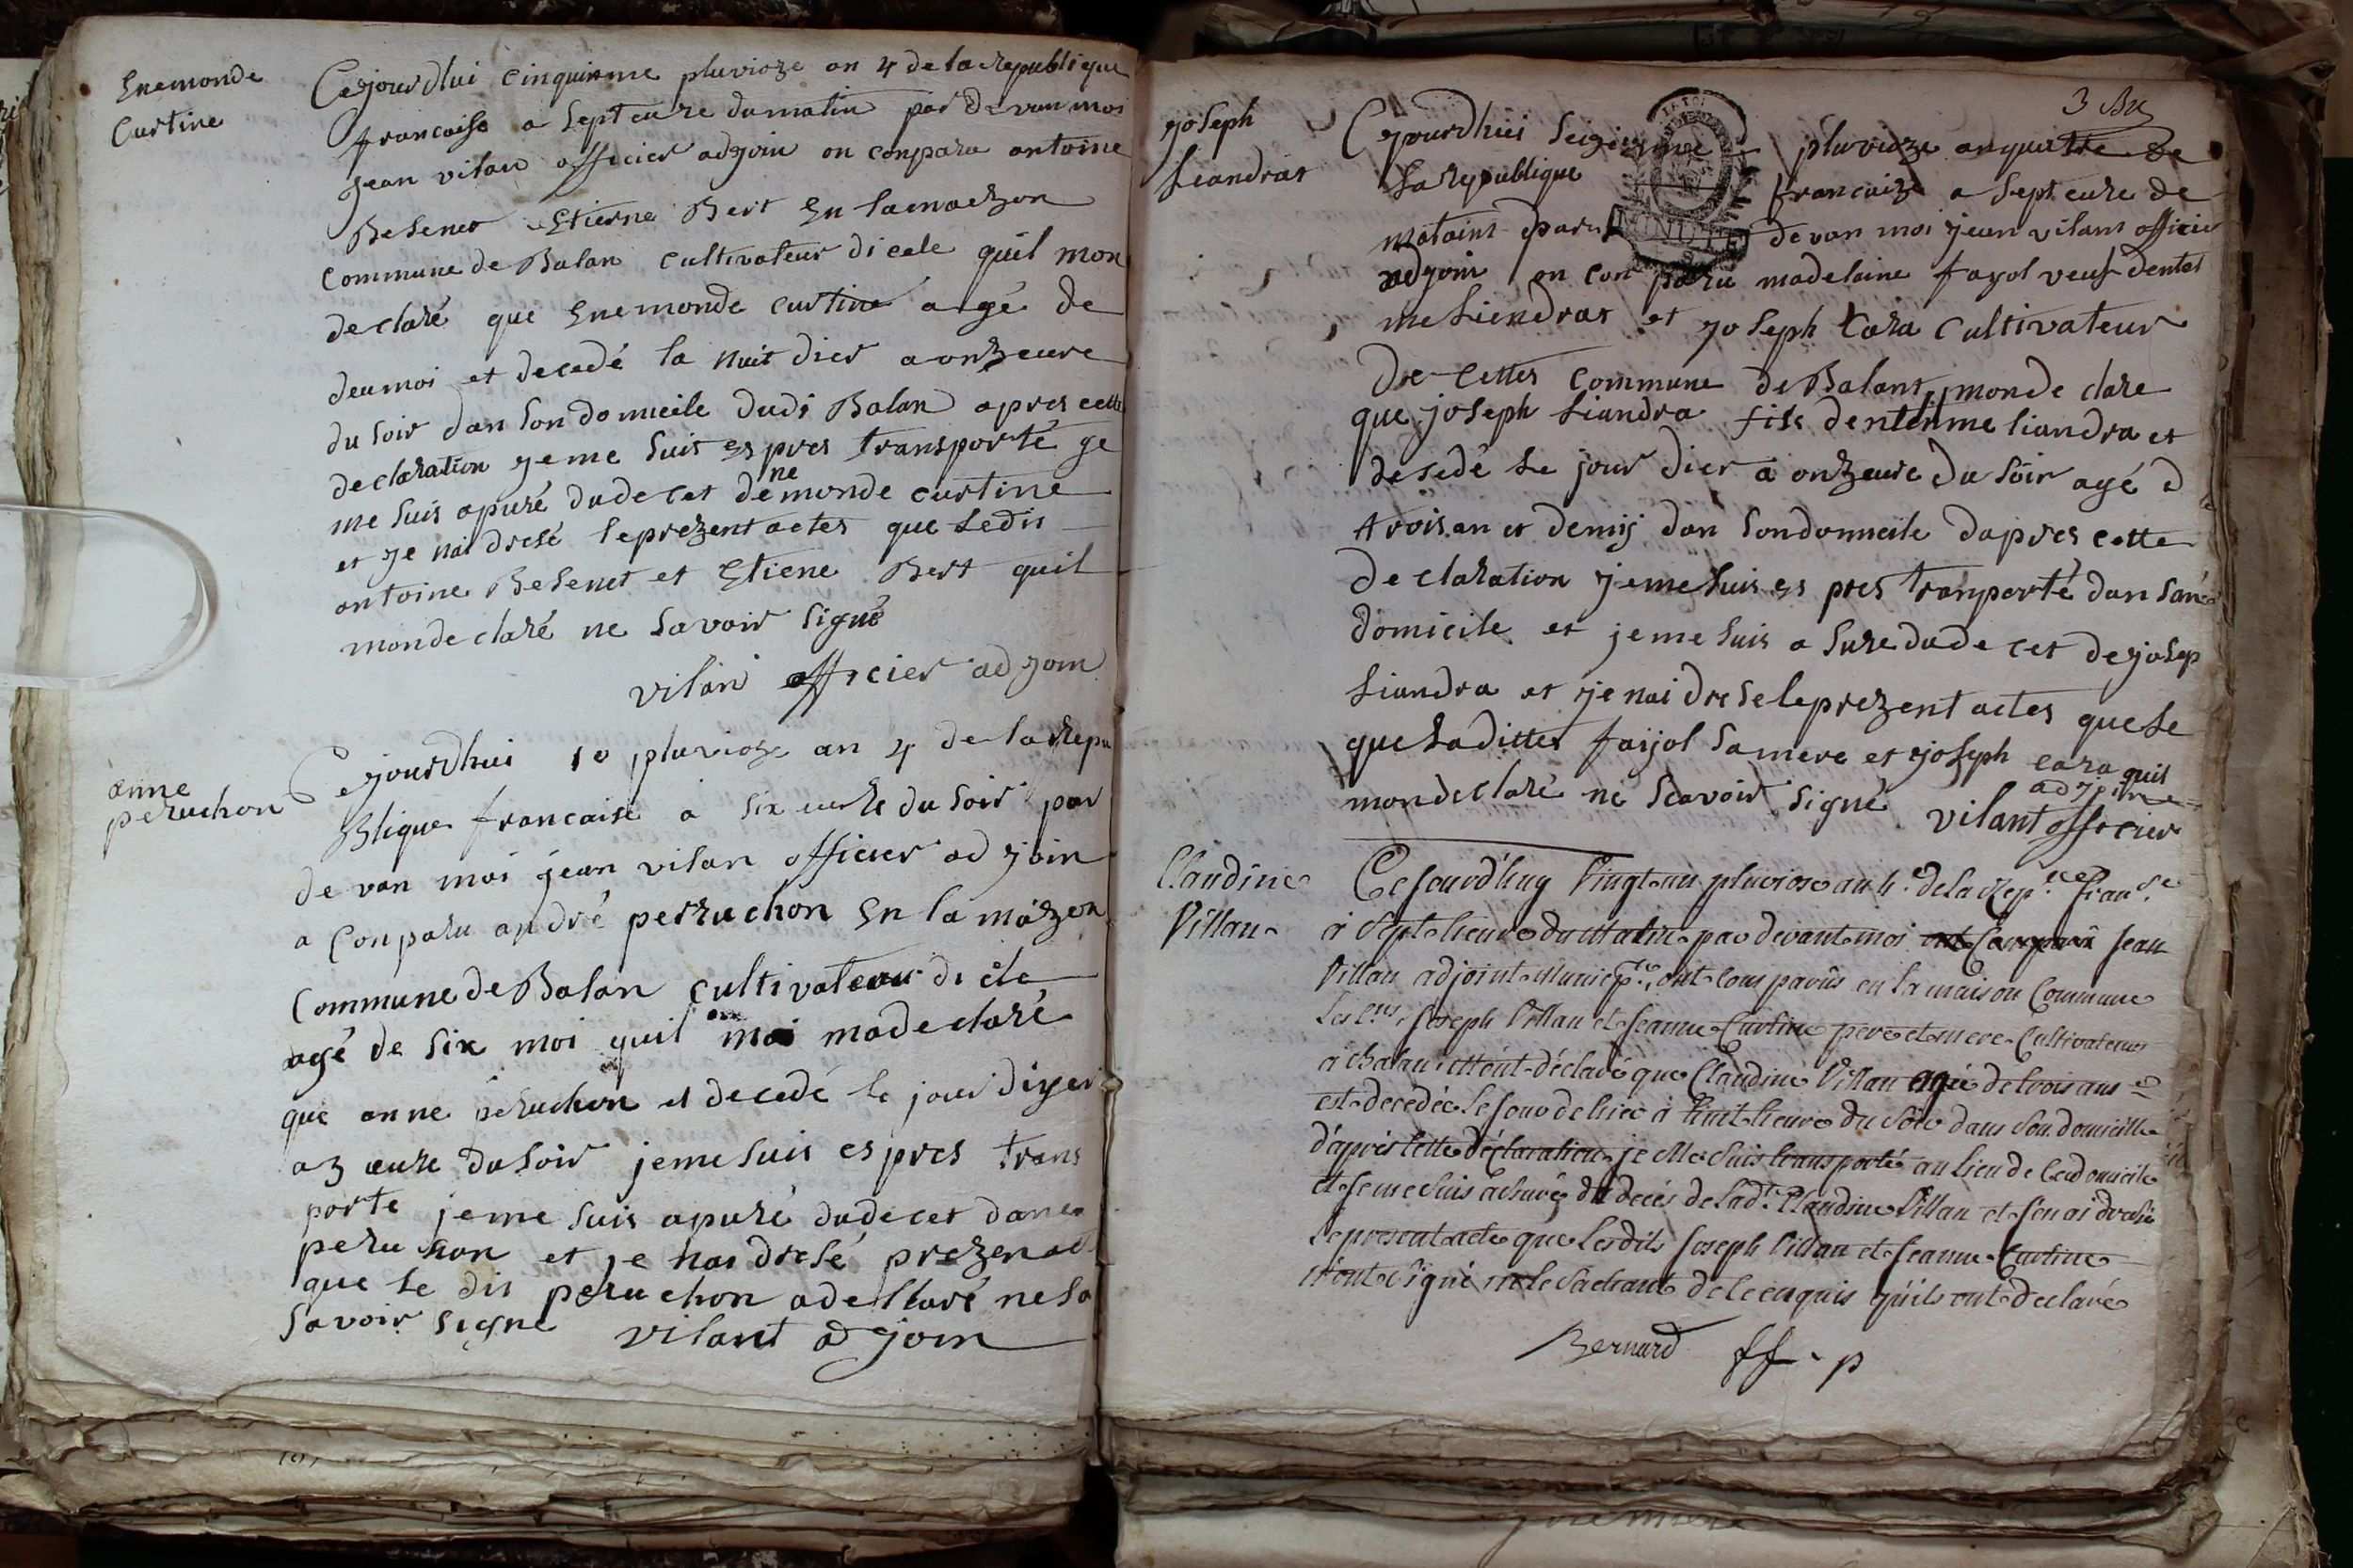 Enemonde
Curtine
Cejourdhui cinquieme pluvioze an 4 de la republique
francaise a sept eure du matin par devan moi
jean vilan officier adjoin on conparu antoine
Besenet Etienne Bert En la maezon
commune de Balan cultivateur dicele quil mon
declaré que Enemonde curtine agé de
deu moi et decedé la nuit dier a onzeure
du soir dan son domicile dudi Balan apres cette
declaration jeme suis espres transporté je
me suis apuré dudecet denemonde curtine
et je nai dresé leprezent actes que ledit
antoine Besenet et Etiene Bert quil
mon declaré ne savoir signé
vilan officier adjoin
anne
peruchon
Cejourdhui 10 pluvioze an 4 de la repu
Blique francaise a six eure du soir par
de van moi jean vilan officier ad join
a conparu andré perruchon En la maizon
Commune de Balan cultivateur di cele
agé de six moi quil moi ma declaré
que anne peruchon et decedé le jour diyer
a 3 eure du soir jeme suis espres trans
porte jeme suis apuré dudecet dane
peruchon et je nai dresé prezen ac
que le dit peruchon a declaré ne sa
savoir signe vilant adjoin
3
joseph
Liandras
Cejourdhui seizieme pluvioze an quattre de
La republique francaize a sept eure de
matains par devan moi jean vilant officier
adjoin on conparu madelaine fayol veuf dentel
me Liendras et joseph Cara cultivateur
De cettes commune de Balant, mon de clare
que joseph Liandra fils dentelme liandra et
desedé le jour dier a onzeure du soir agé d
trois an et demij dan son domicile dapres cette
declaration jeme suis es pres tranporté dan son
domicile et jeme suis a sure dudecet de josep
Liandra et je nai drese leprezent actes que le
que laditte faijol sa mere et joseph cara quil
mon declaré ne scavoir signé vilant officier
adjoine
Claudine
Villan
Cejourd'huy Vingt un pluviose an 4.e de la Rep.que Fran.se
à Sept heure du Matin par devant moi ont Comparû Jean
Villan adjoint Municip.l, ont Comparûs en la maison Commune
Les C.ens Joseph Villan et Jeanne Curtine pere et mere Cultivateurs
à Balan et m'ont déclaré que Claudine Villan agée de trois ans
est decedée le Jour de hier à huit heure du Soir dans Son domicille
d'après cette déclaration je Me Suis transporté au lieu de Ce domicile
et Je me Suis assuré du decés de lad.te Claudine Villan et J'en ai dressé
le present acte que lesdits Joseph Villan et Jeanne Curtine
n'ont Signé ne le Sachant de ce enquis qu'ils ont declaré
Bernard ff. p
MINUTE